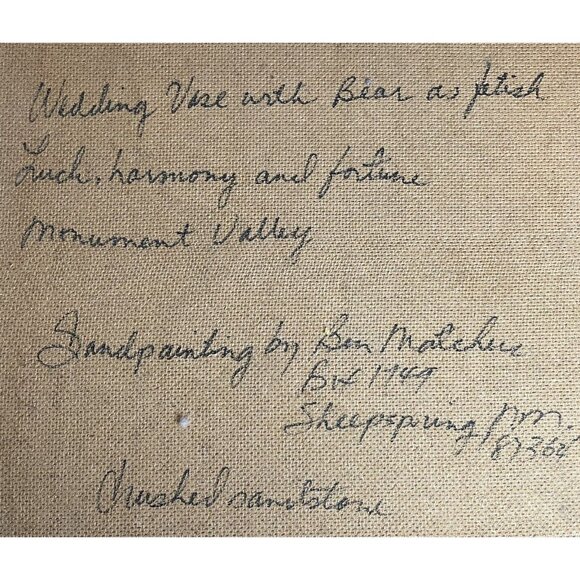 Wedding Vase with Bear as fetish
Luck, harmony and fortune
Monument Valley
Sandpainting by Ben
Box 1749
Sheepspring, N.M.
Crushed sandstone